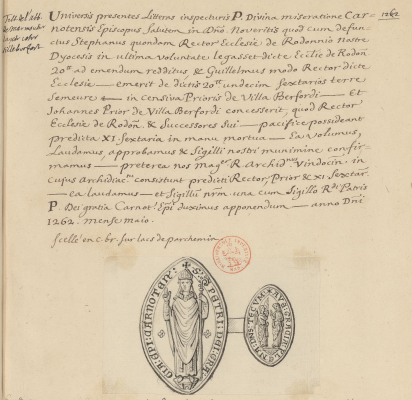 Universis presentes Litteras inspecturis P. Divina miseratione Car-
notensis Episcopus Salutem in Dño. Noveritis quod cum defun-
ctus Stephanus quondam Rector Ecclesie de Rodonnio nostre
Dyocesis in ultima voluntate legasset dicte Ecclie de Rodoñ
20ᵗᵗ ad emendum redditus, & Guillelmus modo Rector dicte
Ecclesie — emerit de dictis 20ᵗᵗ undecim sextarias terre
Semeure — in Censiva Prioris de Villa Berfordi — Et
Johannes Prior de Villa Berfordi concesserit, quod Rector
Ecclesie de Rodoñ & Successores sui — pacifice possideant
predicta XI. Sextaria in manu mortua — Ea volumus,
Laudamus, approbamus & Sigilli nostri munimine confir-
mamus — preterea nos Magʳ R Archidⁿᵘˢ Vindocin. in
cujus Archidiacᵗᵘ Consistunt predicti Rector, Prior & XI. Sextar.
— ea laudamus — et Sigillũ nr̃m. una cum Sigillo Rᵈⁱ Patris
P. Dei gratia Carnot. Epĩ duximus apponendum — anno Dñi
1262. mense Maio.
1262
Scellé en c. br. sur lacs de parchemin